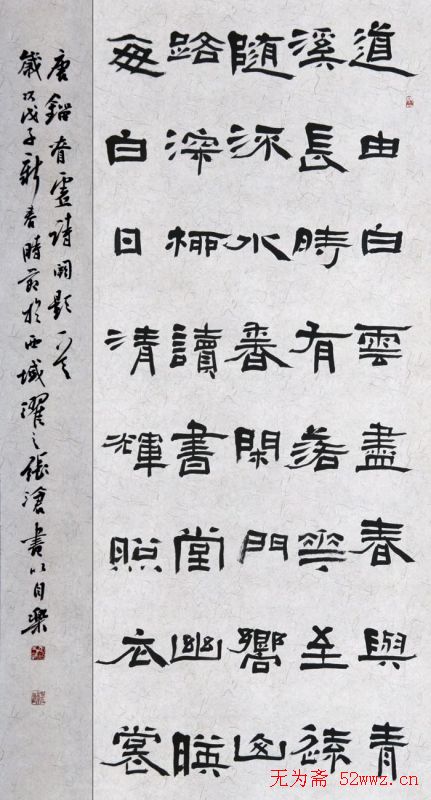 道由白雲盡春與青
溪長時有落花至遠
隨流水香閑門嚮山
路深柳讀書堂幽暎
每白日清輝照衣裳
唐鎦眘虛詩闕題一首
歲次戊子新春時節於西域濯之張滄書以自樂
无为斋 52wwz.cn